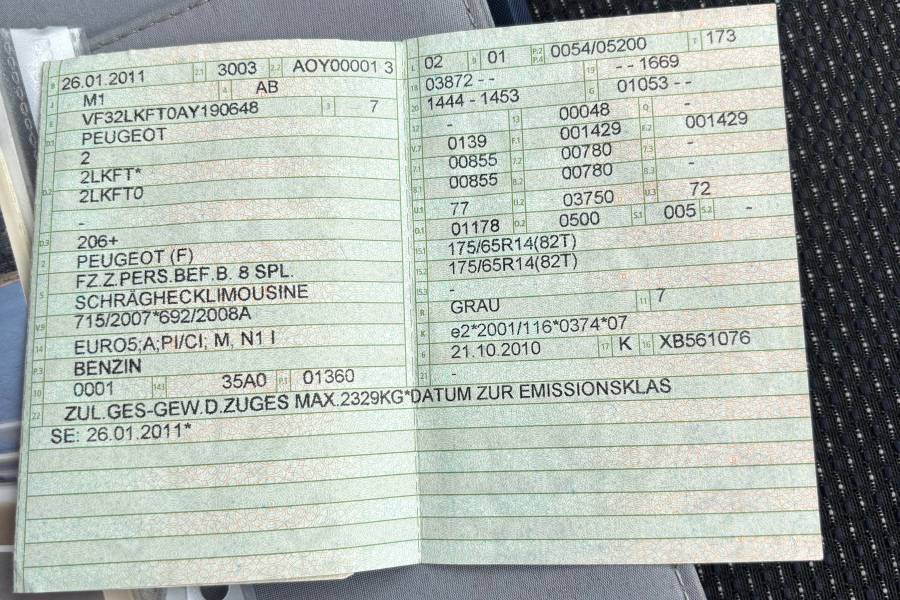 B 26.01.2011 2.1 3003 2.2 AOY00001 3
J M1 4 AB
E VF32LKFT0AY190648 3 7
D.1 PEUGEOT
D.2 2
2LKFT*
2LKFT0
-
D.3 206+
2 PEUGEOT (F)
5 FZ.Z.PERS.BEF.B. 8 SPL.
SCHRÄGHECKLIMOUSINE
V.9 715/2007*692/2008A
14 EURO5;A;PI/CI; M, N1 I
P.3 BENZIN
10 0001 14.1 35A0 P.1 01360
22 ZUL.GES-GEW.D.ZUGES MAX.2329KG*DATUM ZUR EMISSIONSKLAS
SE: 26.01.2011*
L 02 9 01 P.2 P.4 0054/05200 T 173
18 03872 - - 19 - - 1669
20 1444 - 1453 G 01053 - -
12 - 13 00048 Q -
V.7 0139 F.1 001429 F.2 001429
7.1 00855 7.2 00780 7.3 -
8.1 00855 8.2 00780 8.3 -
U.1 77 U.2 03750 U.3 72
O.1 01178 O.2 0500 S.1 005 S.2 -
15.1 175/65R14(82T)
15.2 175/65R14(82T)
15.3 -
R GRAU 11 7
K e2*2001/116*0374*07
6 21.10.2010 17 K 16 XB561076
21 -